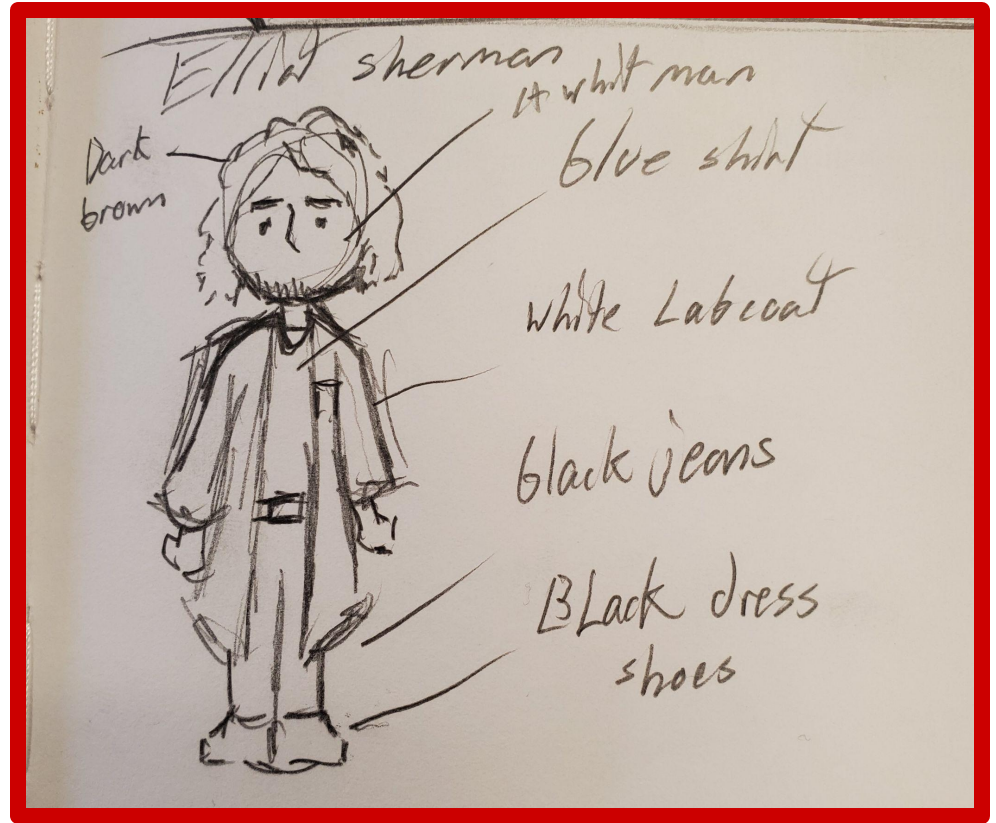 Elliot sherman
A whit man
Dark
brown
blue shirt
white Labcoat
black jeans
BLack dress
shoes